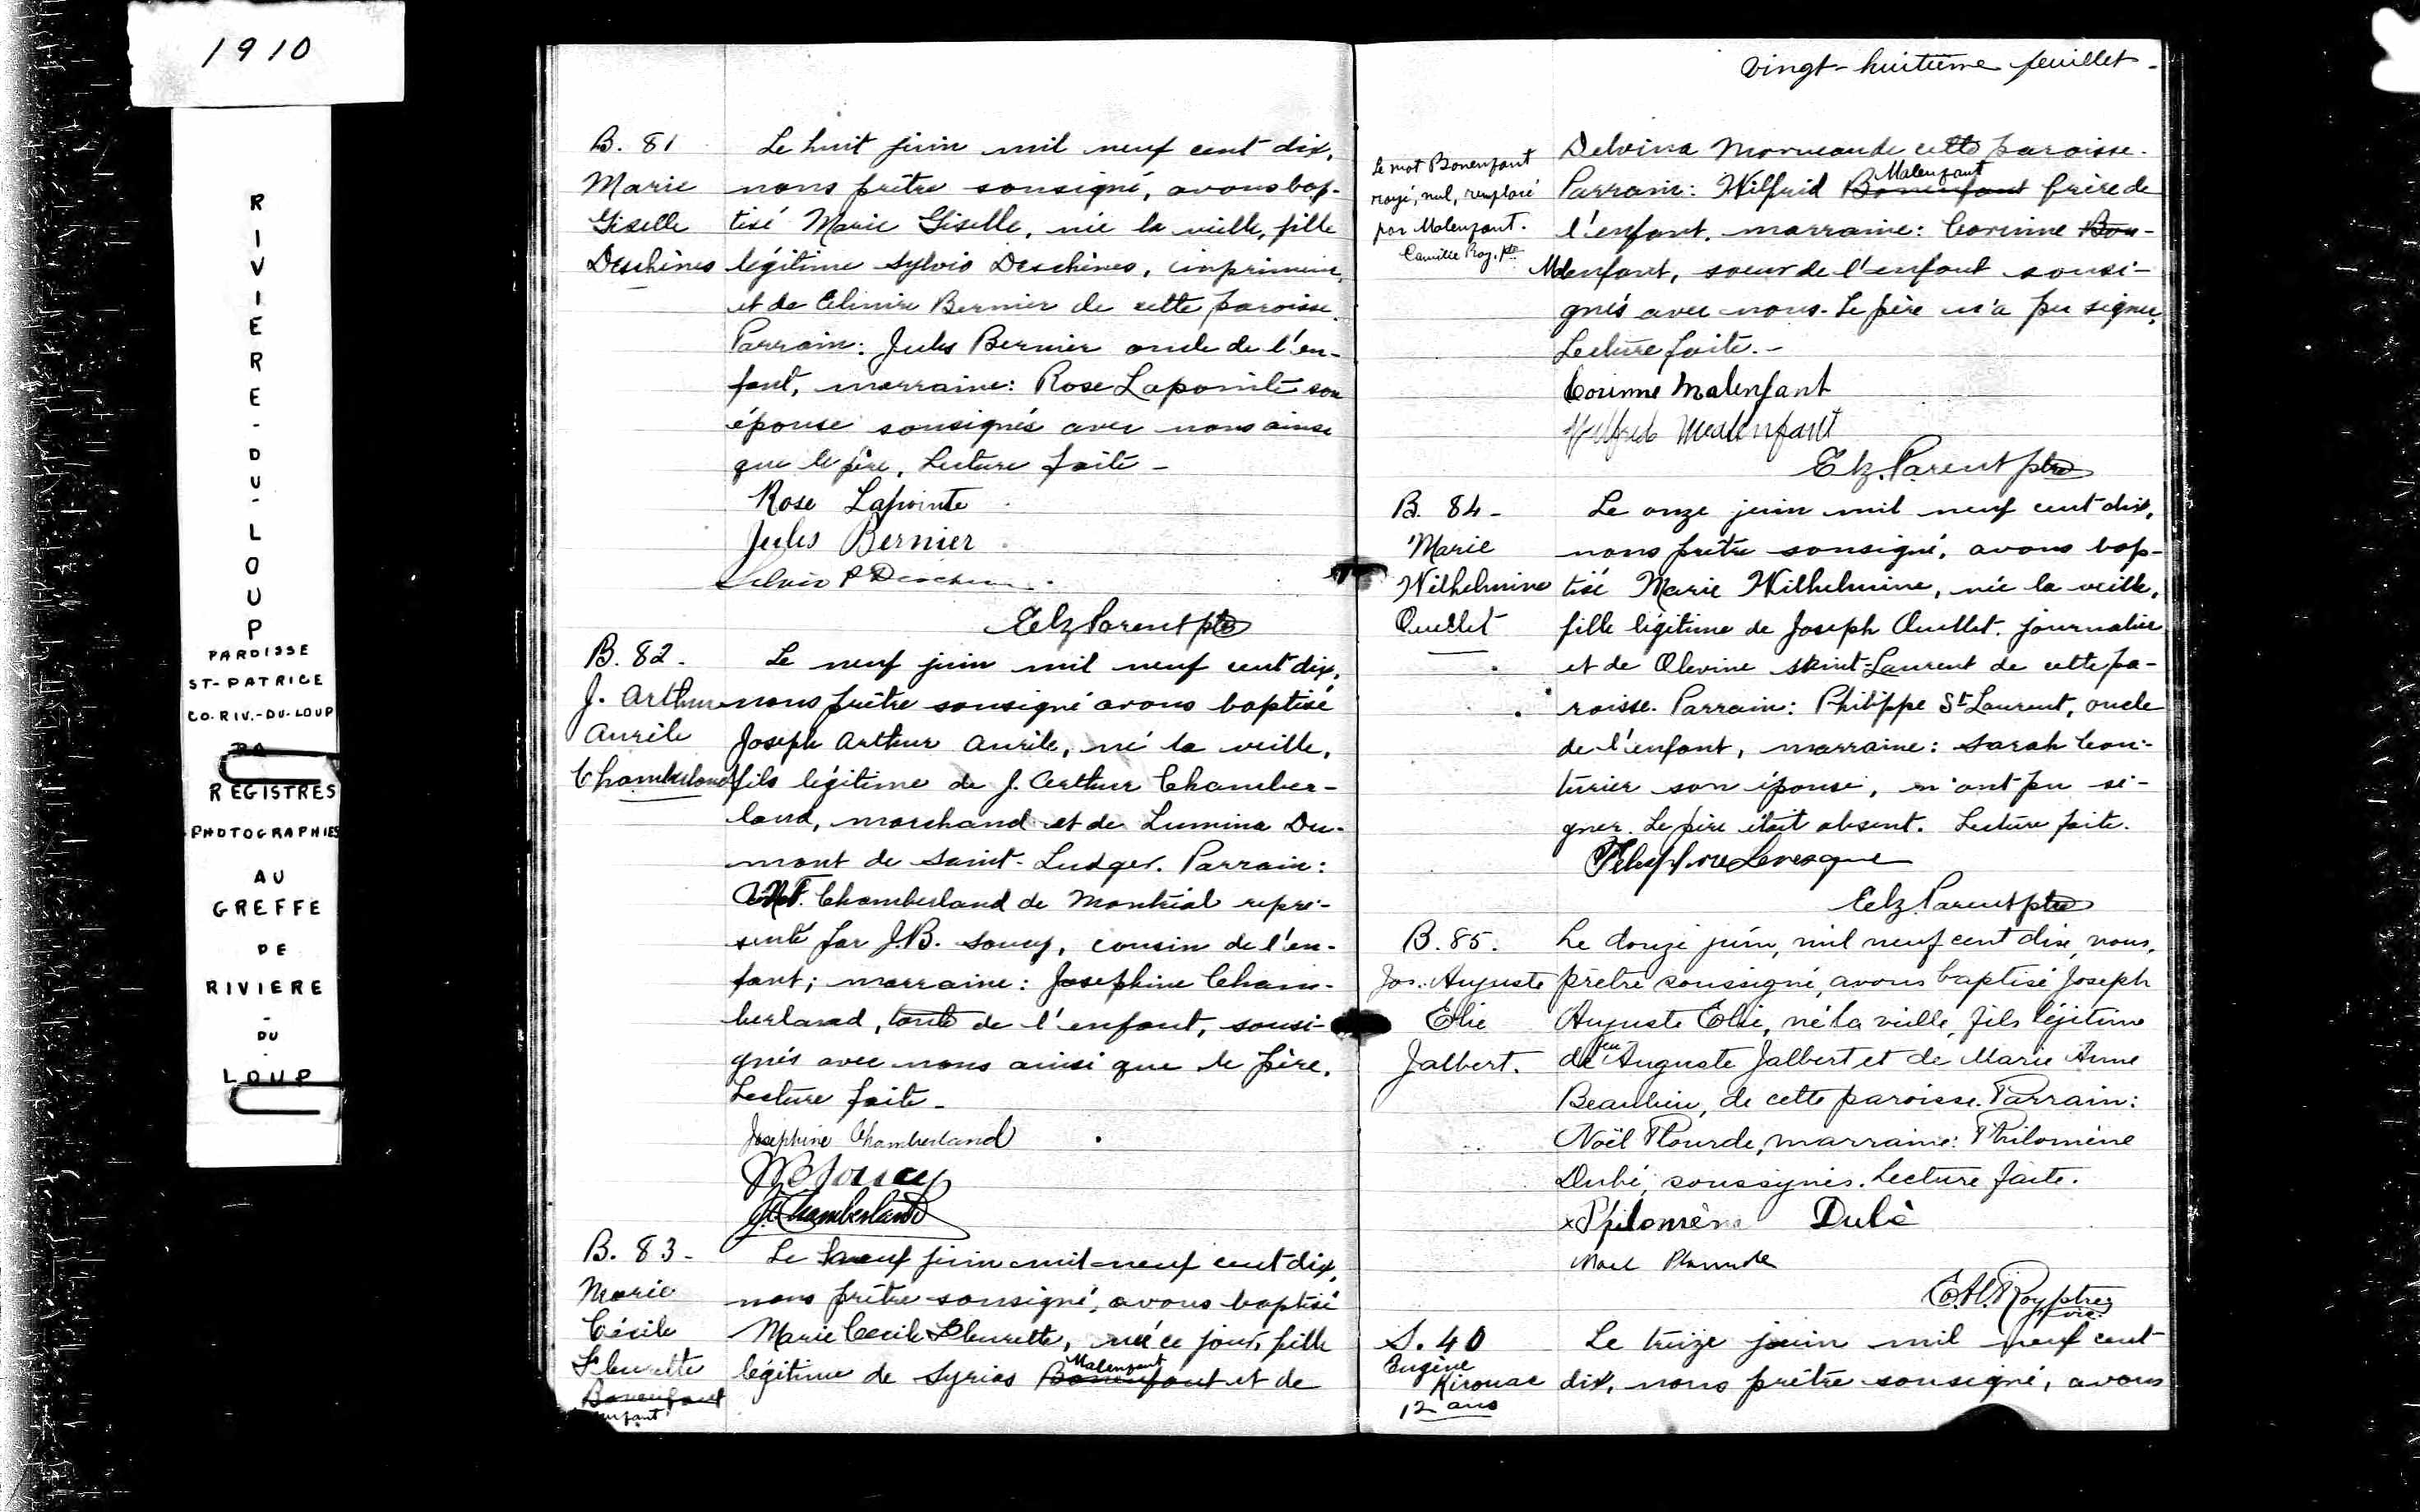 1910
RIVIERE-DU-LOUP
PAROISSE
ST-PATRICE
CO. RIV.-DU-LOUP
REGISTRES
PHOTOGRAPHIES
AU
GREFFE
DE
RIVIERE
-
DU
-
LOUP
B. 81
Marie
Giselle
Deschênes
Le huit juin mil neuf cent dix,
nous prêtre sousigné, avons bap-
tisé Marie Giselle, née la veille, fille
légitime Sylvio Deschênes, imprimeur,
et de Elmire Bernier de cette paroisse.
Parrain: Jules Bernier oncle de l'en-
fant, marraine: Rose Lapointe son
épouse sousignés avec nous ainsi
que le père. Lecture faite -
Rose Lapointe
Jules Bernier
Eelz Parent ptre
B. 82.
J. Arthur
Aurèle
Chamberland
Le neuf juin mil neuf cent dix,
nous prêtre sousigné avons baptisé
Joseph Arthur Aurèle, né la veille,
fils légitime de J. Arthur Chamber-
land, marchand et de Lumina Du-
mont de Saint-Ludger. Parrain:
Chamberland de Montréal repré-
senté par J.B. Soucy, cousin de l'en-
fant; marraine: Josephine Cham-
berland, tante de l'enfant, sousi-
gnés avec nous ainsi que le père.
Lecture faite -
Josephine Chamberland
JB Soucy
J.A. Chamberland
B. 83 -
Marie
Cécile
Fleurette
Bonenfant
enfant
Le neuf juin mil neuf cent dix,
nous prêtre sousigné, avons baptisé
Marie Cecile Fleurette, née ce jour, fille
Malenfant
légitime de Syrias Bonenfant et de
vingt-huitième feuillet -
Le mot Bonenfant
rayé, nul, remplacé
par Malenfant.
Camille Roy, ptre
Delvina Morneau de cette paroisse.
Malenfant
Parrain: Wilfrid Bonenfant frère de
l'enfant, marraine: Corinne Bon-
Malenfant, soeur de l'enfant sousi-
gnés avec nous. Le père n'a pu signer.
Lecture faite. -
Corinne Malenfant
Wilfrid Malenfant
Elz. Parent ptre
B. 84 -
Marie
Wilhelmine
Ouellet
Le onze juin mil neuf cent dix,
nous prêtre sousigné, avons bap-
tisé Marie Wilhelmine, née la veille,
fille légitime de Joseph Ouellet, journalier
et de Olevine Saint-Laurent de cette pa-
roisse. Parrain: Philippe St Laurent, oncle
de l'enfant, marraine: Sarah Cou-
turier son épouse, n'ont pu si-
gner. Le père était absent. Lecture faite.
Telesphore Levesque
Eelz. Parent ptre
B. 85.
Jos. Auguste
Elie
Jalbert.
Le douze juin, mil neuf cent dix, nous,
prêtre soussigné, avons baptisé Joseph
Auguste Elie, né la veille, fils légitime
feu
de Auguste Jalbert et de Marie Anne
Beaulieu, de cette paroisse. Parrain:
Noël Plourde, marraine: Philomène
Dubé, soussignés. Lecture faite.
x Philomène Dubé
Noel Plourde
Roy ptre
vic.
S. 40
Eugène
Kirouac
12 ans
Le treize juin mil neuf cent
dix, nous prêtre sousigné, avons